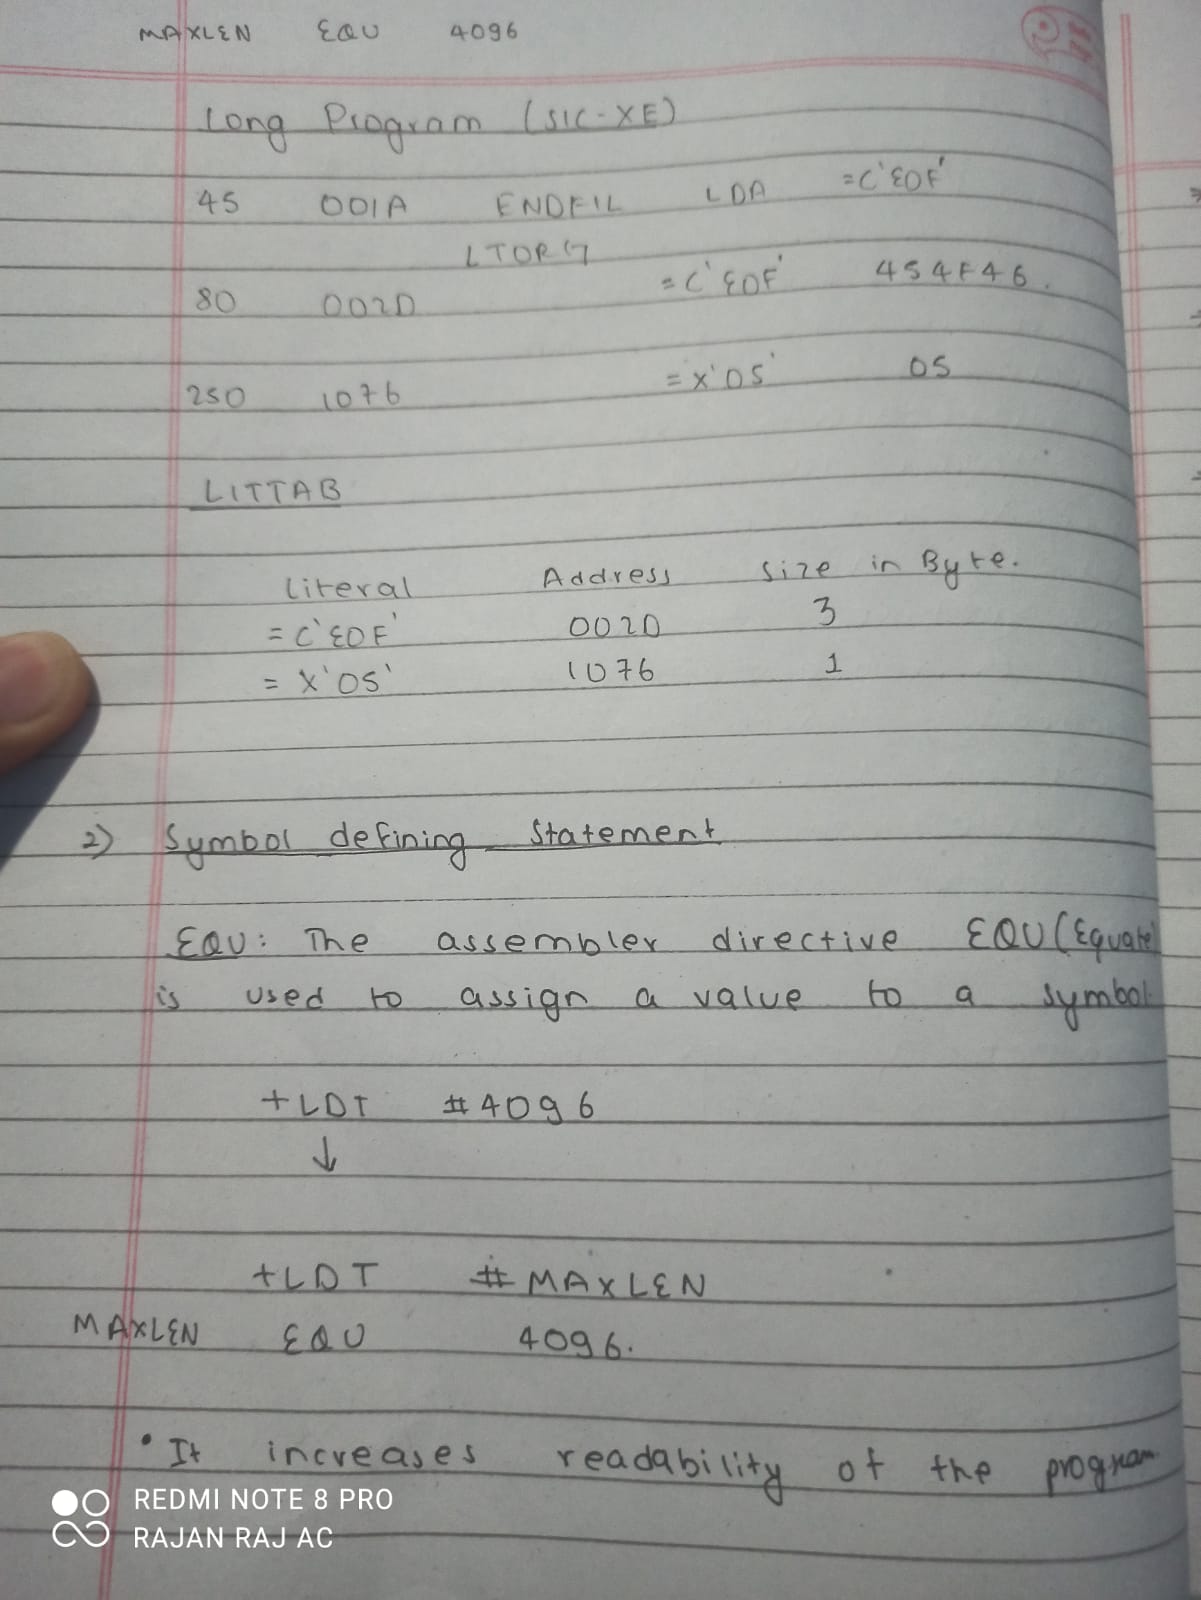 MAXLEN EQU 4096
Long Program (SIC-XE)
45 001A ENDFIL LDA =C'EOF'
LTORG
80 002D =C'EOF' 454F46.
250 1076 =X'05' 05
LITTAB
Literal Address Size in Byte.
=C'EOF' 002D 3
=X'05' 1076 1
2) Symbol defining Statement
EQU: The assembler directive EQU (Equate)
is used to assign a value to a symbol.
+LDT #4096
↓
+LDT #MAXLEN
MAXLEN EQU 4096.
• It increases readability of the program
REDMI NOTE 8 PRO
RAJAN RAJ AC